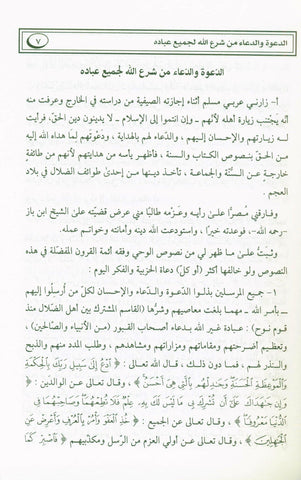 ٧
الدعوة والدعاء من شرع الله لجميع عباده
الدعوة والدعاء من شرع الله لجميع عباده
أ- زارني عربي مسلم أثناء إجازته الصيفية من دراسته في الخارج وعرفت منه
أنه يجتنب زيارة أهله لأنهم – وإن انتموا إلى الإسلام – لا يدينون دين الحق، فرأيت
له زيارتهم والإحسان إليهم، والدعاء لهم بالهداية، ودعوتهم لما هداه الله إليه
من الحق بنصوص الكتاب والسنة، فأظهر يأسه من هدايتهم لأنهم من طائفة
خارجة عن السنة والجماعة، تأخذ دينها من إحدى طوائف الضلال في بلاد
العجم.
وفارقني مصرًّا على رأيه وعزمه طالبًا مني عرض قضيته على الشيخ ابن باز
-رحمه الله-، فوعدته خيرًا، واستودعت الله دينه وأمانته وخواتم عمله.
وثبت على ما ظهر لي من نصوص الوحي وفقه أئمة القرون المفضلة في هذه
النصوص ولو خالفها أكثر (أو كل) دعاة الحزبية والفكر اليوم:
١- جميع المرسلين بذلوا الدعوة والدعاء والإحسان لكل من أرسلوا إليهم
بأمر الله – مهما بلغت معاصيهم وشرها (القاسم المشترك بين أهل الضلال منذ
قوم نوح): عبادة غير الله بدعاء أصحاب القبور (من الأنبياء والصالحين)،
وتعظيم أضرحتهم ومقاماتهم ومزاراتهم ومشاهدهم، وطلب المدد منهم والذبح
والنذر لهم، فما دون ذلك، قال الله تعالى: ﴿ ادْعُ إِلَىٰ سَبِيلِ رَبِّكَ بِالْحِكْمَةِ
وَالْمَوْعِظَةِ الْحَسَنَةِ وَجَادِلْهُم بِالَّتِي هِيَ أَحْسَنُ ﴾، وقال تعالى عن الوالدين: ﴿
وَإِن جَاهَدَاكَ عَلَىٰ أَن تُشْرِكَ بِي مَا لَيْسَ لَكَ بِهِ عِلْمٌ فَلَا تُطِعْهُمَا وَصَاحِبْهُمَا فِي
الدُّنْيَا مَعْرُوفًا ﴾، وقال تعالى عن الجميع: ﴿ خُذِ الْعَفْوَ وَأْمُرْ بِالْعُرْفِ وَأَعْرِضْ عَنِ
الْجَاهِلِينَ ﴾، وقال تعالى عن أولي العزم من الرسل ومكذبيهم ﴿ فَاصْبِرْ كَمَا